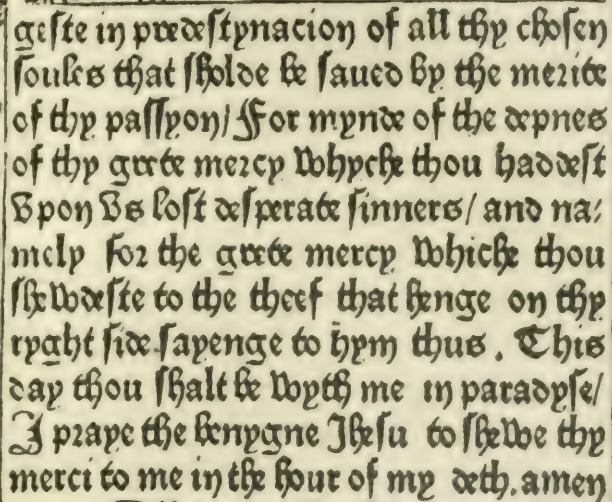 geste in predestynacion of all thy chosen
soules that sholde be saued by the merite
of thy passyon/ For mynde of the depnes
of thy grete mercy whyche thou haddest
vpon vs lost desperate sinners/ and na:
mely for the grete mercy whiche thou
shewdeste to the theef that henge on thy
ryght side sayenge to hym thus. This
day thou shalt be wyth me in paradyse/
I praye the benygne Jhesu to shewe thy
merci to me in the hour of my deth. amen